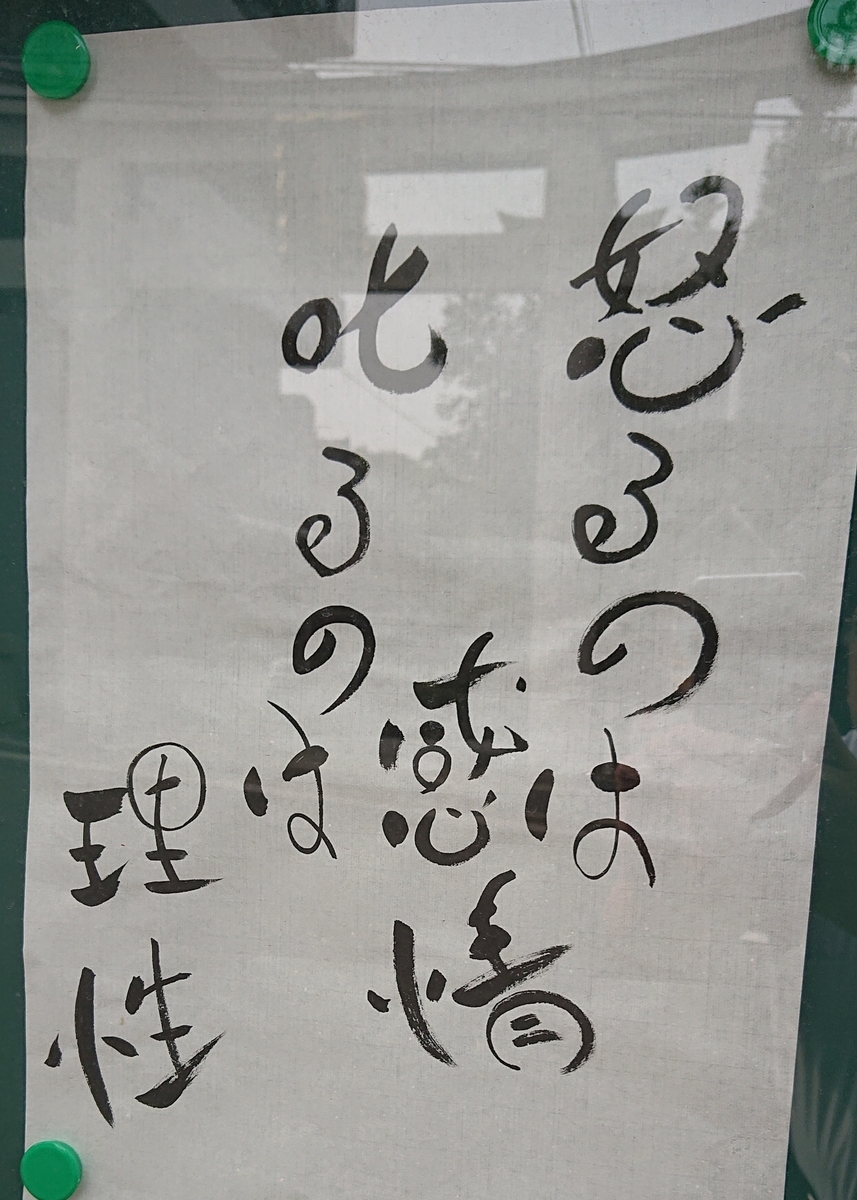 怒るのは
感情
叱るのは
理性